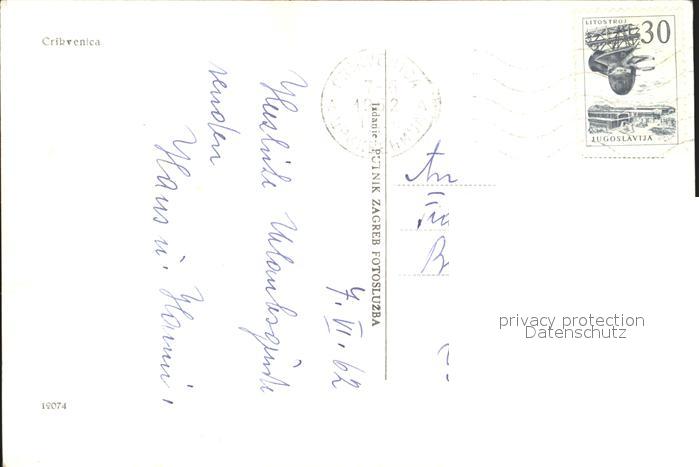 Crikvenica
LITOSTROJ 30
JUGOSLAVIJA
Izdanje: PUTNIK ZAGREB FOTOSLUŽBA
7. VI. 62
Herzliche Urlaubsgrüße
senden
Hans u. Hanni.
An
B
privacy protection
Datenschutz
12074